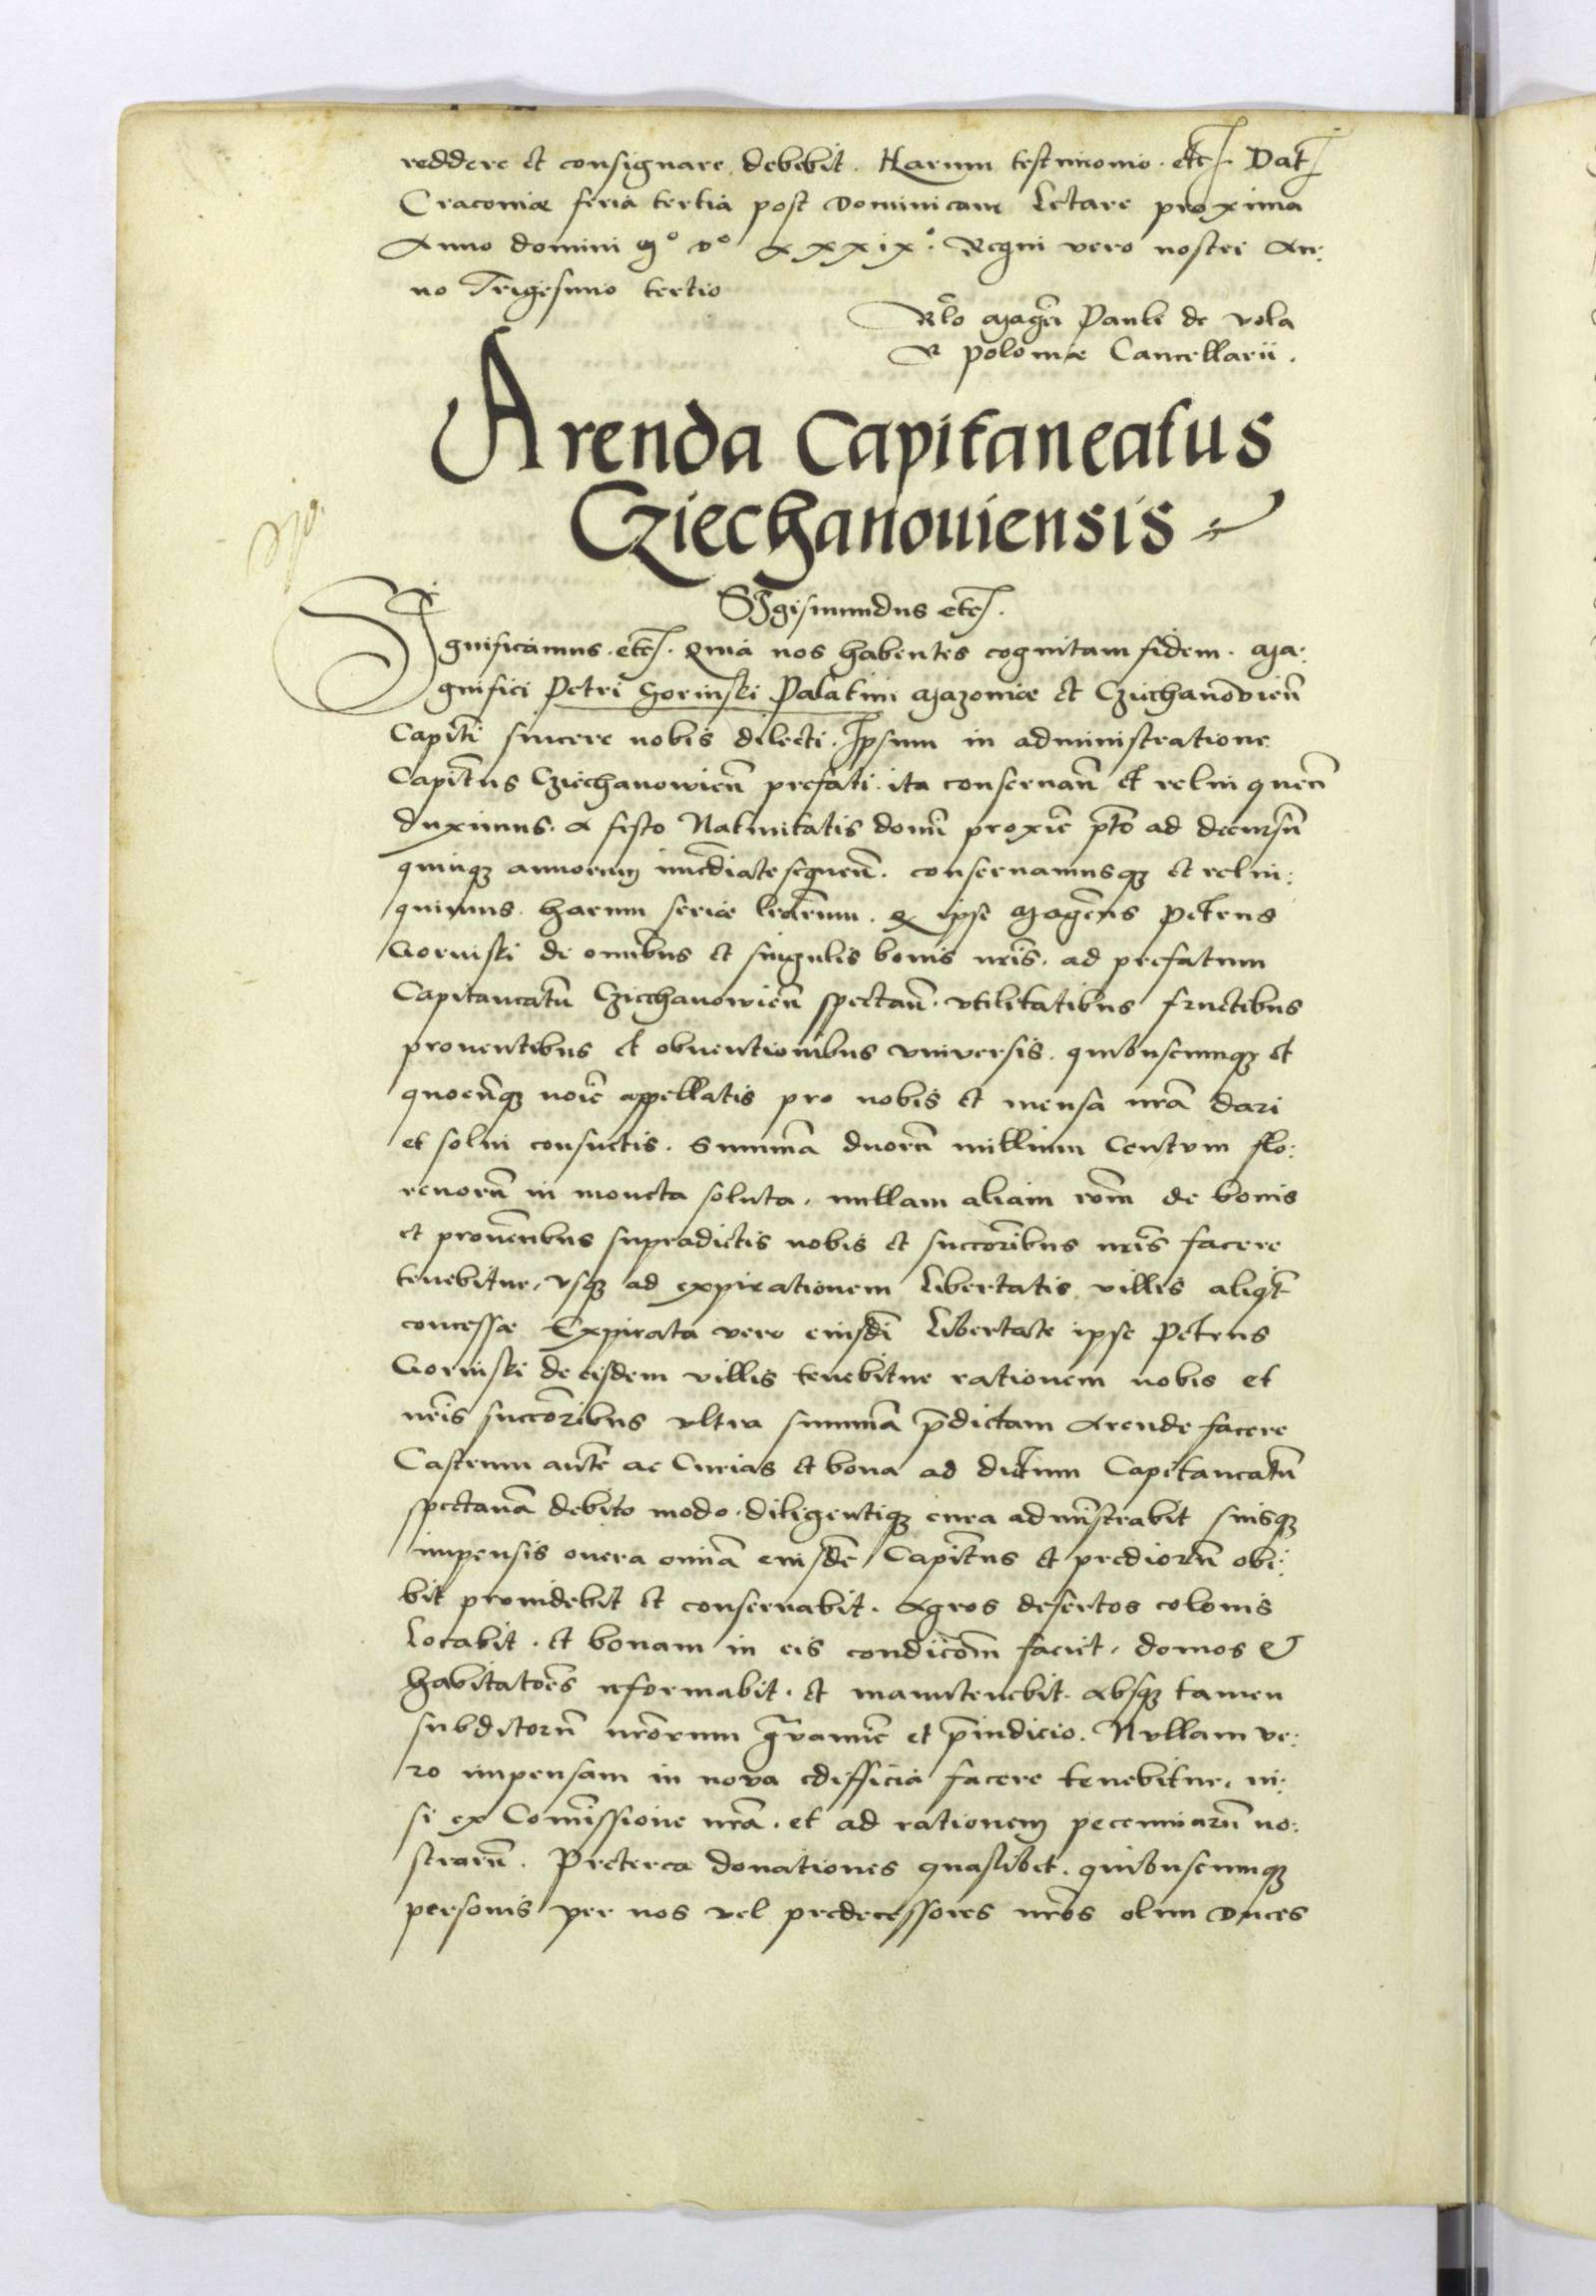 reddere et consignare debebit. Harum testimonio. etc. Dat
Cracoviæ feria tertia post Dominicam Letare proxima
Anno domini Mº Dº XXXIXº. Regni vero nostri An:
no Trigesimo tertio
Rlo Magci Pauli de vola
R poloniæ Cancellarii.
Arenda Capitaneatus
Cziechanouiensis
SIgismundus etc.
SIgnificamus. etc. Quia nos habentes cognitam fidem. Ma:
gnifici Petri Gorinski Palatini Mazoviæ et Cziechanovieñ
Capitī sincere nobis dilecti. Ipsum in administratione
Capitūs Cziechanowieñ prefati. ita conservañ et relinqueñ
duximus. A festo Nativitatis domī proxīe p̄to ad decursū
quinq; annorum īmediate sequeñ. conservamusq; et relin:
quimus. harum serie lrarum. Q ipse Magcūs Petrus
Gorinski de omībus et singulis bonis nr̄is. ad prefatum
Capitaneatū Cziechanowieñ spectañ. vtilitatibus fructibus
proventibus et obventionibus vniversis. quibuscumq; et
quocūq; noīe appellatis pro nobis et mensa nrā dari
et solvi consuetis. Summā duorū millium Centum flo:
renorū in moneta soluta. nullam aliam roēm de bonis
et provenībus supradictis nobis et succoribus nr̄is facere
tenebitur, vsq; ad expirationem Libertatis villis aliqt
concessæ Expirata vero eiusdē Libertate ipse Petrus
Gorinski de eisdem villis tenebitur rationem nobis et
nr̄is succoribus vltra summā p̄dictam Arende facere
Castrum autē ac Curias et bona ad dictum Capitaneatū
spectanā debito modo. diligentiq; cura administrabit suisq;
impensis onera omīa eiusdē Capitūs et prediorū obi:
bit providebit et conservabit. Agros desertos colonis
Locabit. et bonam in eis condicōm faciet, domos &
habitatoēs reformabit. et manutenebit. Absq; tamen
subditorū nrorum gravamīe et p̄iudicio. Nullam ve:
ro impensam in nova edifficia facere tenebitur, ni:
si ex Comīssione nrā. et ad rationem pecuniarū no:
strarū. Preterea donationes quaslibet. quibuscumq;
personis per nos vel predecessores nrōs olim Duces